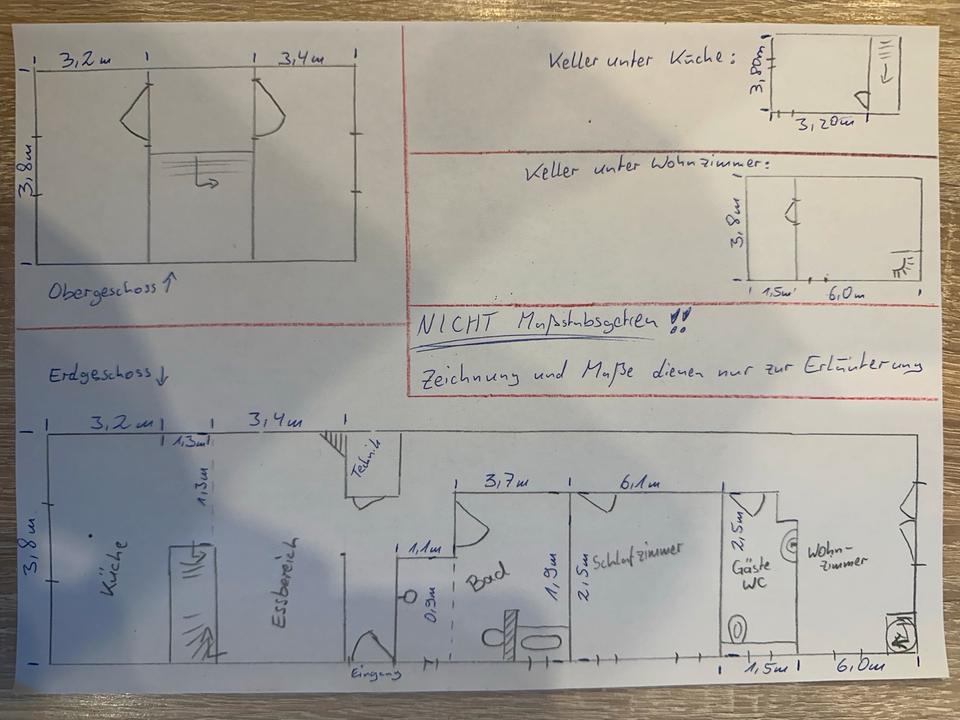 3,2m
3,4m
3,8m
Obergeschoss ↑
Keller unter Küche:
3,80m
3,20m
Keller unter Wohnzimmer:
3,8m
1,5m
6,0m
NICHT Maßstabsgetreu !!
Zeichnung und Maße dienen nur zur Erläuterung
Erdgeschoss ↓
3,2m
1,3m
3,4m
3,8m
1,3m
Küche
Essbereich
Technik
Eingang
1,1m
0,9m
3,7m
Bad
1,9m
6,1m
2,5m
Schlafzimmer
2,5m
Gäste
WC
Wohn-
zimmer
1,5m
6,0m